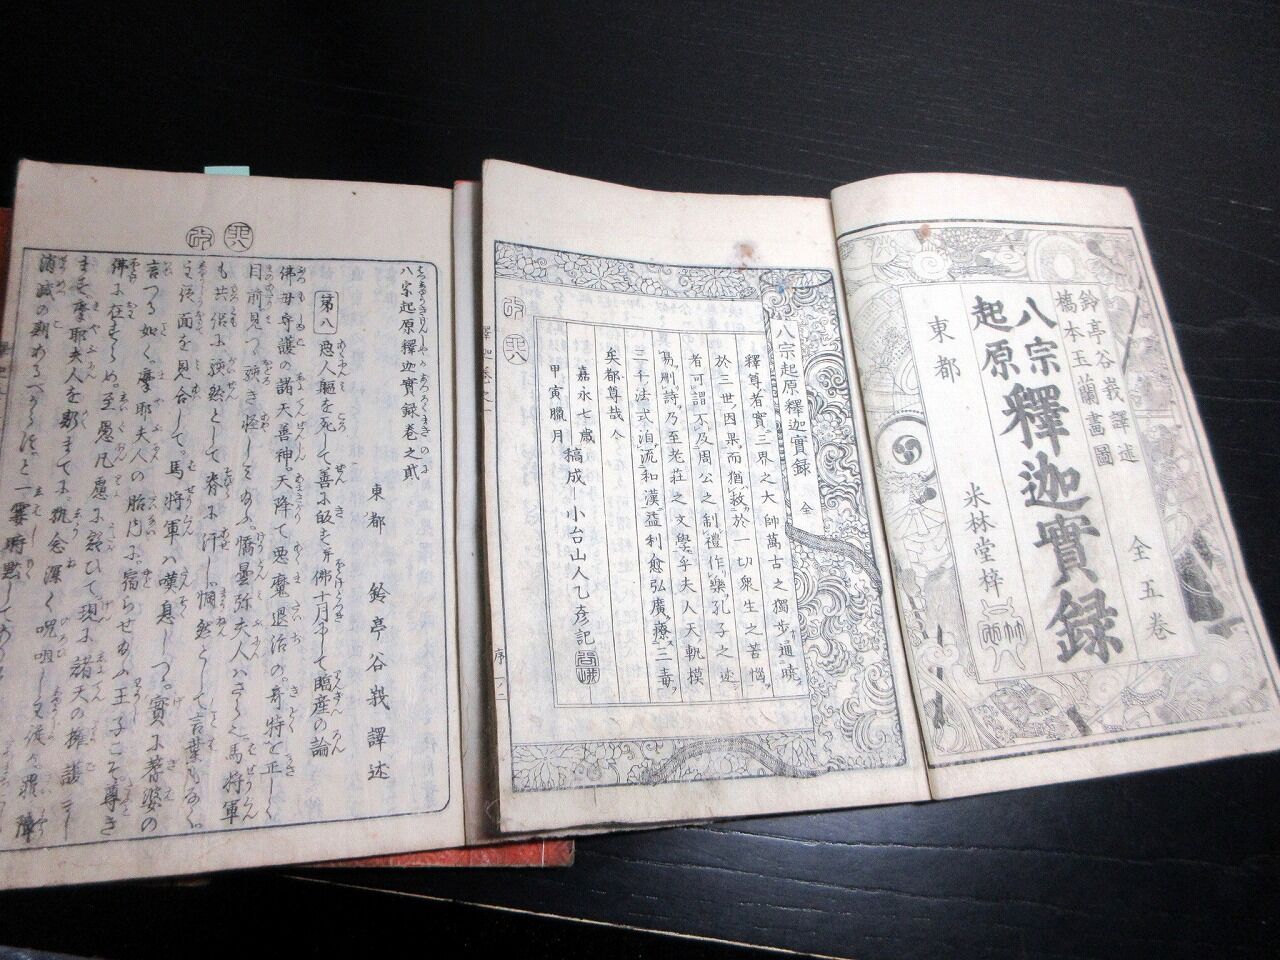 鈴亭谷峩譯述
橋本玉蘭畵圖
八宗
起原
釋迦實録
全五卷
東都
米林堂梓
八宗起原釋迦實録 全
釋尊者實三界之大師萬古之獨歩通曉
於三世因果而猶救於一切衆生之苦惱
者可謂不及周公之制禮作樂孔子之述
易刪詩乃至老莊之文學乎夫人天軌模
三千法式洎流和漢益利愈弘廣療三毒
矣都尊哉今
嘉永七歳
甲寅臘月
稿成
小台山人乙彦記
序
八宗起原釋迦實録卷之貳
東都 鈴亭谷峩譯述
第八 悪人軀を死して善に皈す并佛十月にして臨産の論
佛母守護の諸天善神。天降て悪魔退治の。奇特を正しく
目前見つゝ
憍曇弥夫人ハ
馬将軍
も共侶に
として脊に汗し。惘然として言葉もなく。
面を見合して。馬将軍ハ嘆息しつ。實に
婆の
言つる如く。摩耶夫人の胎内に。宿らせ
王子こそ尊き
佛に在すらめ。至愚凡慮に
ひて。現に諸天の擁護
摩耶夫人を
執念深く呪咀
罪障
消滅の期あるべからず。と一霎時黙して